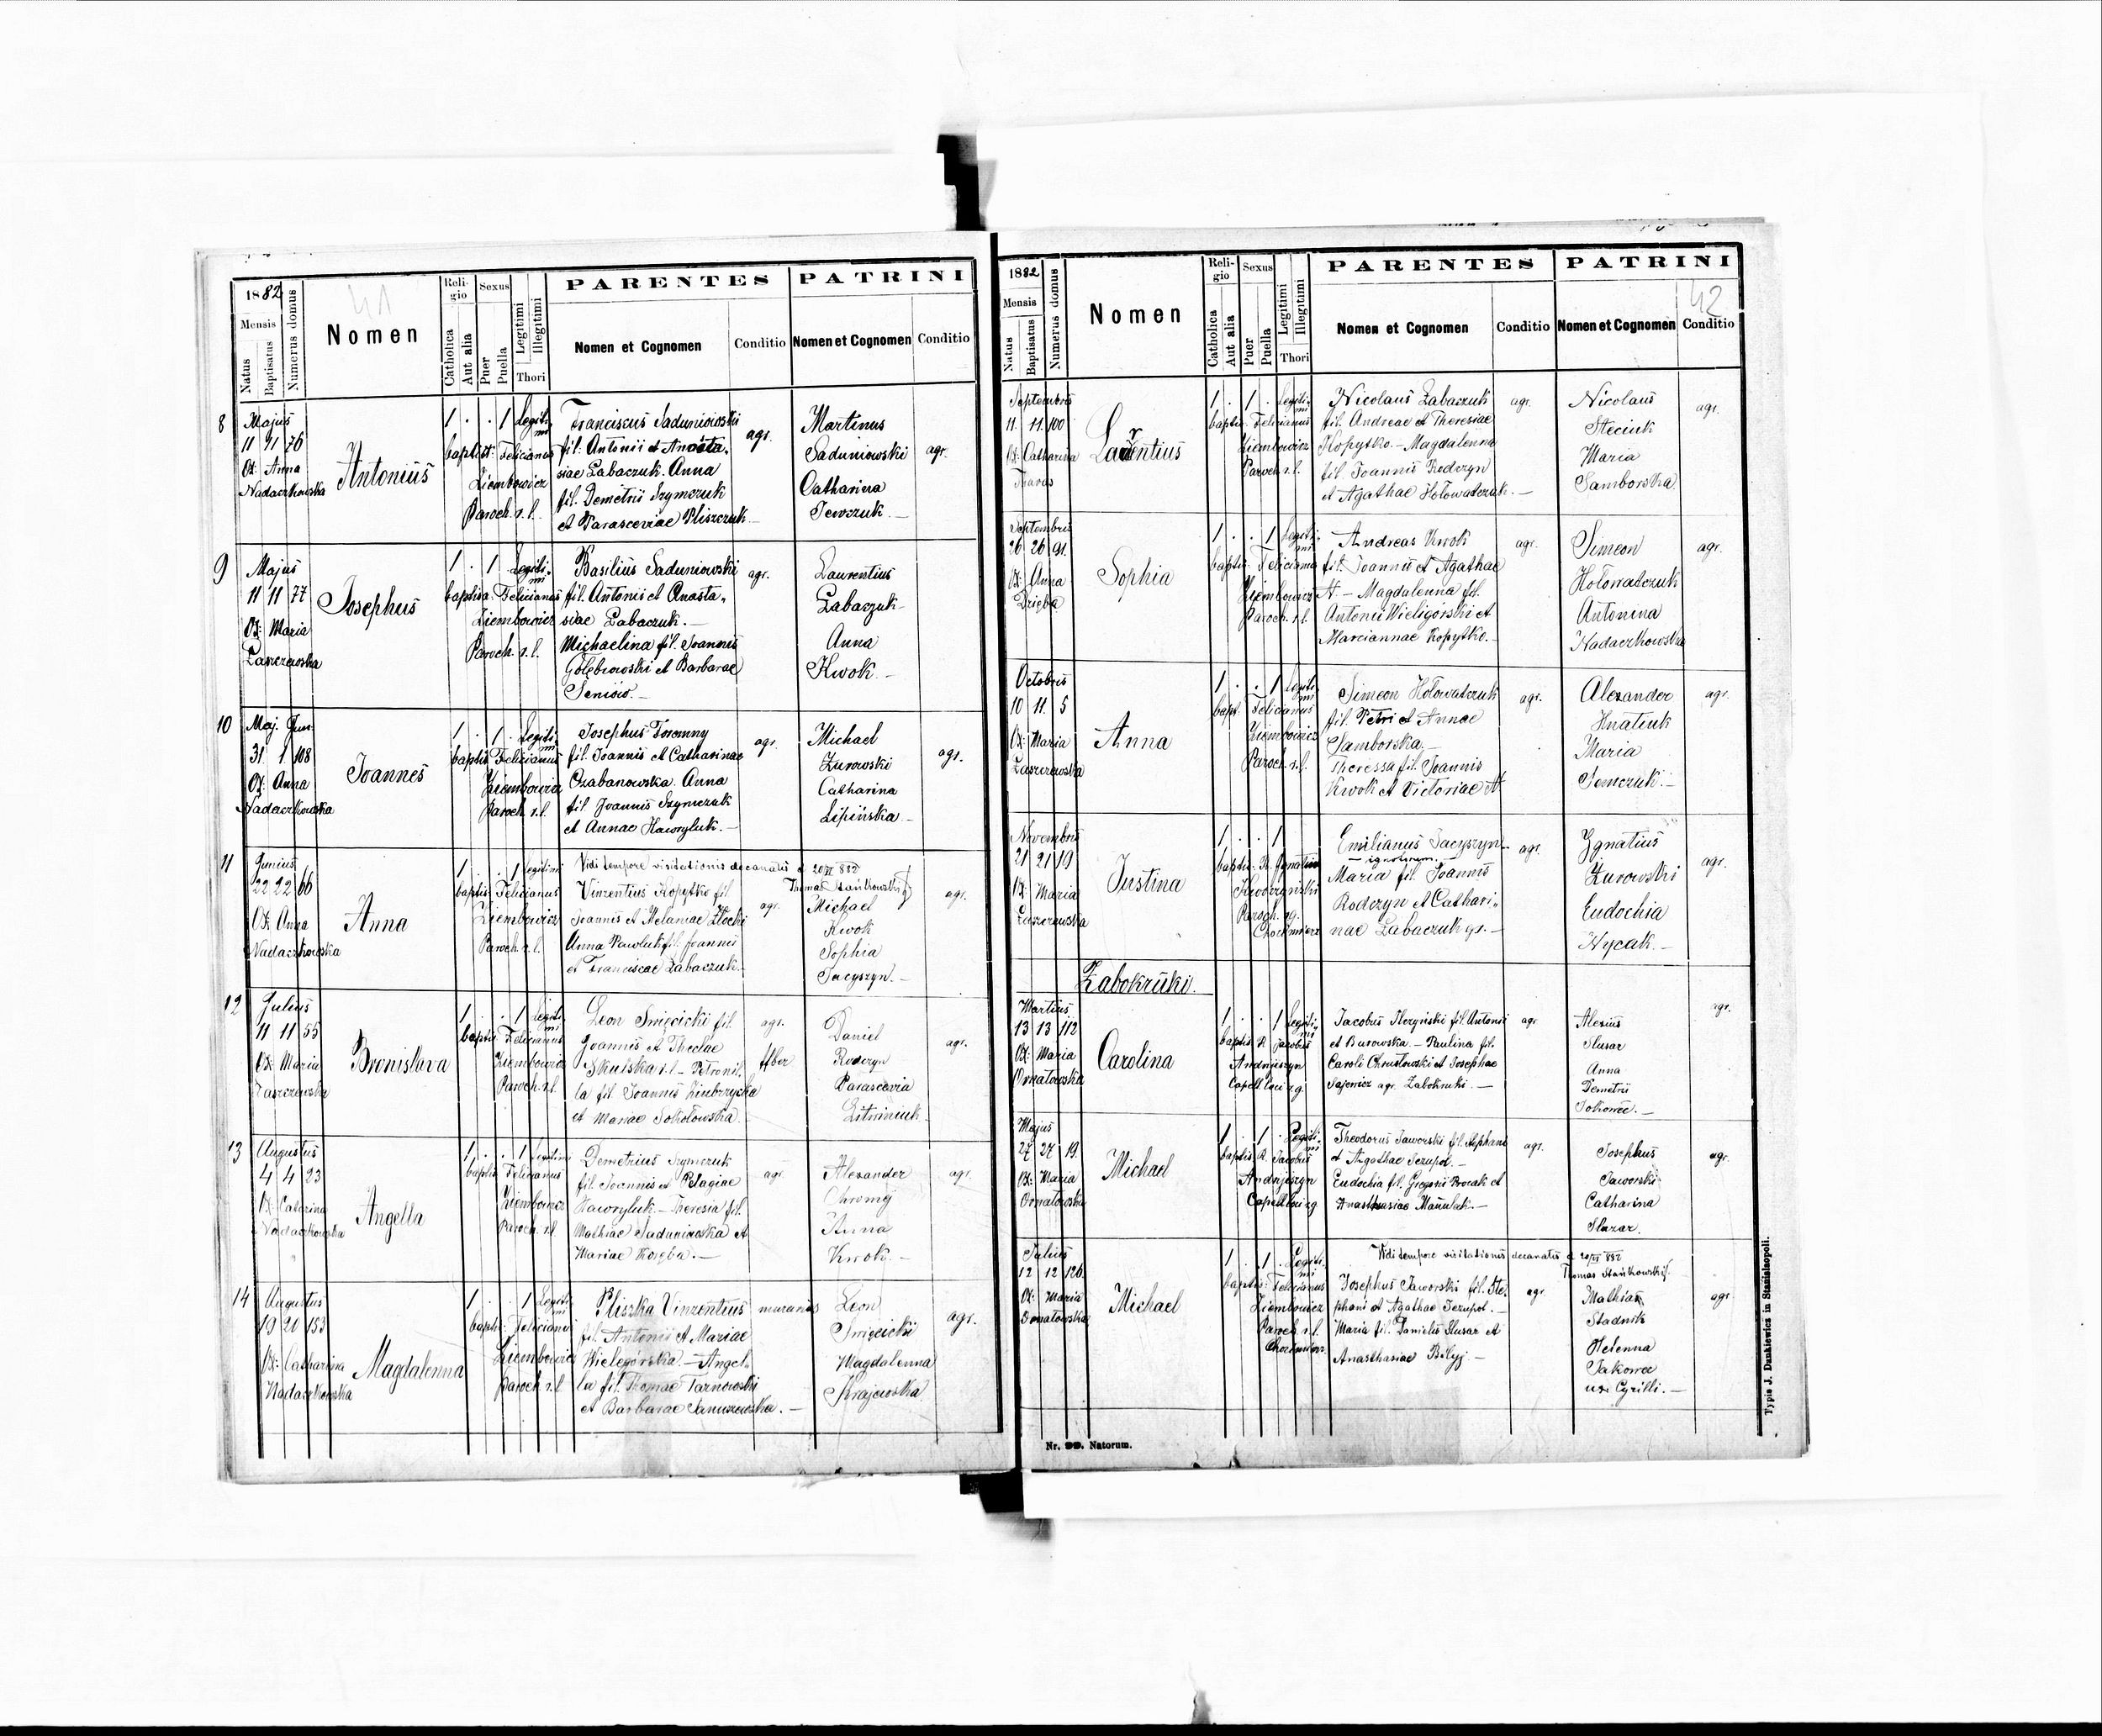 1882
41
Mensis
Natus
Baptisatus
Numerus domus
Nomen
Religio
Catholica
Aut alia
Sexus
Puer
Puella
Legitimi
Illegitimi
Thori
PARENTES
Nomen et Cognomen
Conditio
PATRINI
Nomen et Cognomen
Conditio
8
Majus
11 11 76
Ox: Anna
Nadaczkowska
Antonius
1 . . 1 Legiti-
mi
baptis: Felicianus
Ziembowicz
Paroch. r. l.
Franciscus Saduniowski
fil. Antonii et Anasta-
siae Łabaczuk. Anna
fil. Demetrii Szymczuk
et Parasceviae Pliszczuk.
agr.
Martinus
Saduniowski
Catharina
Semczuk.
agr.
9
Majus
11 11 77
Ox: Maria
Łaszczewska
Josephus
1 . 1 Legiti-
mi
baptisa: Felicianus
Ziembowicz
Paroch. r. l.
Basilius Saduniowski
fil. Antonii et Anasta-
siae Łabaczuk.—
Michaelina fil. Joannis
Gołębiowski et Barbarae
Seniów.—
agr.
Laurentius
Łabaczuk
Anna
Kwok.—
10
Maj. Jun.
31 1 108
Ox: Anna
Nadaczkowska
Joannes
1 . 1 . Legiti-
mi
baptis: Felicianus
Ziembowicz
Paroch. r. l.
Josephus Foromny
fil. Joannis et Catharinae
Czabanowska. Anna
fil Joannis Szymczuk
et Annae Hawryluk.—
agr.
Michael
Żurowski
Catharina
Lipińska.—
agr.
11
Junius
22 22 66
Ox: Anna
Nadaczkowska
Anna
1 . . 1 Legitimi
baptis: Felicianus
Ziembowicz
Paroch. r. l.
Vidi tempore visitationis decanatis d 20/VI 882
Thomas Stańkowski
Vinzentius Kopytko fil.
Joannis et Melaniae Złocki
Anna Pawluk fil. Joannis
et Franciscae Łabaczuk.
agr.
Michael
Kwok
Sophia
Jacyszyn.—
agr.
12
Julius
11 11 55
Ox: Maria
Łaszczewska
Bronislava
1 . . 1 Legiti-
mi
baptis: Felicianus
Ziembowicz
Paroch. r. l.
Leon Święcicki fil.
Joannis et Theclae
Skulska r. l. — Petronil-
la fil. Joannis
et Mariae Sokołowska.
agr.
Daniel
Rodczyn
Parascevia
Litwiniuk.
agr.
13
Augustus
4 4 23
Ox: Catarina
Nadaczkowska
Angella
1 . . 1 Legitimi
baptis: Felicianus
Ziembowicz
Paroch. r. l.
Demetrius Szymczuk
fil. Joannis et Pelagiae
Hawryluk.— Theresia fil.
Mathiae Saduniowska et
Mariae.—
agr.
Alexander
Chromy
Anna
Kwok.—
agr.
14
Augustus
19 20 153
Ox: Catharina
Nadaczkowska
Magdalenna
1 . . 1 Legiti-
mi
baptis: Felicianus
Ziembowicz
Paroch r. l
Pliszka Vinzentius
fil. Antonii et Mariae
Wielegórska.— Angel-
la fil. Thomae Tarnowski
et Barbarae Januszewska.—
murarius
Leon
Święcicki
Magdalenna
Krajewska
agr.
1882
42
Mensis
Natus
Baptisatus
Numerus domus
Nomen
Religio
Catholica
Aut alia
Sexus
Puer
Puella
Legitimi
Illegitimi
Thori
PARENTES
Nomen et Cognomen
Conditio
PATRINI
Nomen et Cognomen
Conditio
Septembris
11 11 100
Ox: Catharina
Laurentius
1 . 1 . Legiti-
mi
baptis: Felicianus
Ziembowicz
Paroch r. l.
Nicolaus Łabaczuk
fil. Andreae et Theresiae
Kopytko.— Magdalenna
fil. Joannis Rodczyn
et Agathae Hołowatczuk.—
agr.
Nicolaus
Steciuk
Maria
Samborska.
agr.
Septembris
26 26 91
Ox: Anna
Dzięba
Sophia
1 . . 1 Legiti-
mi
baptis: Felicianus
Ziembowicz
Paroch. r. l.
Andreas Kwok
fil. Joannis et Agathae
N.— Magdalenna fil.
Antonii Wieligórski et
Mariannae Kopytko.—
agr.
Simeon
Hołowatczuk
Antonina
Nadaczkowska
agr.
Octobris
10 11 5
Ox: Maria
Łaszczewska
Anna
1 . . 1 Legiti-
mi
bapt: Felicianus
Ziembowicz
Paroch. r. l.
Simeon Hołowatczuk
fil. Petri et Annae
Samborska.—
Theressa fil. Joannis
Kwok et Victoriae N.
agr.
Alexander
Hnatiuk
Maria
Semczuk.—
agr.
Novembris
21 21 19
Ox: Maria
Łaszczewska
Justina
1 . . 1
baptis: R. Ignatius
Paroch. r. g.
Emilianus Jacyszyn
Maria fil. Joannis
Rodczyn et Cathari-
nae Łabaczuk gr.—
agr.
Ygnatius
Żurowski
Eudochia
Hycak.—
agr.
Żabokruki.
Martius
13 13 112
Ox: Maria
Ornatowska
Carolina
1 . . 1 Legiti-
mi
baptis: R. Jacobus
Andrijszyn
Capellan r. g.
Jacobus Ilczyński fil. Antonii
et Burowska.— Paulina fil.
Caroli Chrustowski et Josephae
Sajewicz agr. Żabokruki.—
agr
Alexius
Slusar
Anna
Demetrii
agr.
Majus
27 27 19
Ox: Maria
Ornatowska
Michael
1 . 1 . Legiti-
mi
baptis. R. Jacobus
Andrijszyn
Capellan r. g
Theodorus Jaworski fil. Stephani
et Agathae Jezupol.—
Eudochia fil. Gregorii Procak et
Anasthasiae Manulak.—
agr.
Josephus
Jaworski
Catharina
Sluzar.
agr.
Julius
12 12 126
Ox: Maria
Ornatowska
Michael
1 . 1 . Legiti-
mi
baptis: Felicianus
Ziembowicz
Paroch r. l.
Vidi tempore visitationis decanatis d 20/VI 882
Thomas Stańkowski
Josephus Jaworski fil. Ste-
phani et Agathae Jezupol.—
Maria fil. Danielis Slusar et
Anasthasiae Biłyj —
agr
Mathias
Stadnik
Helenna
Jakowa
uxr Cyrilli.—
agr
Nr. 99. Natorum.
Typis J. Dankiewicz in Stanislaopoli.